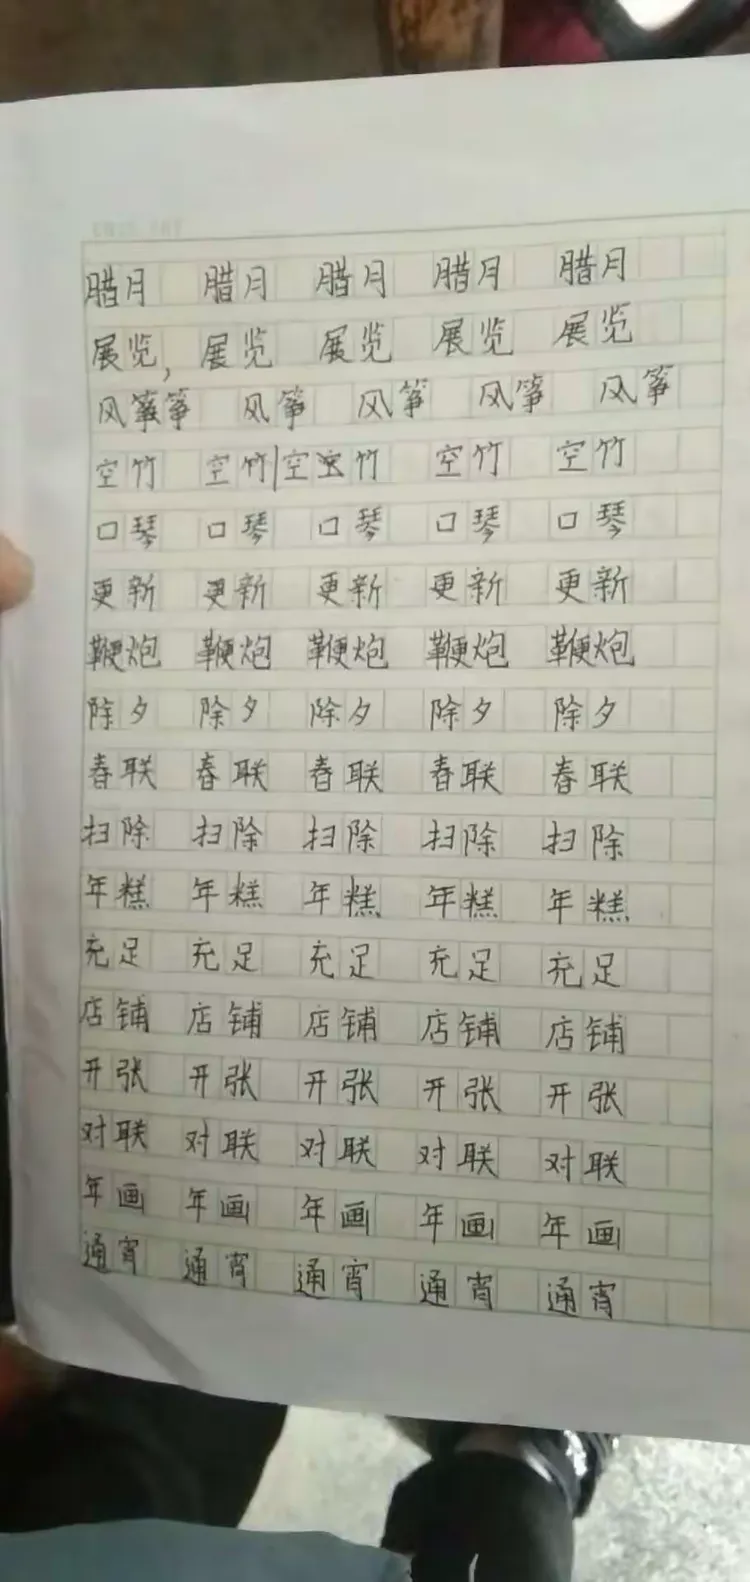 腊月 腊月 腊月 腊月 腊月
展览, 展览 展览 展览 展览
风筝 风筝 风筝 风筝 风筝
空竹 空竹 空竹 空竹 空竹
口琴 口琴 口琴 口琴 口琴
更新 更新 更新 更新 更新
鞭炮 鞭炮 鞭炮 鞭炮 鞭炮
除夕 除夕 除夕 除夕 除夕
春联 春联 春联 春联 春联
扫除 扫除 扫除 扫除 扫除
年糕 年糕 年糕 年糕 年糕
充足 充足 充足 充足 充足
店铺 店铺 店铺 店铺 店铺
开张 开张 开张 开张 开张
对联 对联 对联 对联 对联
年画 年画 年画 年画 年画
通宵 通宵 通宵 通宵 通宵